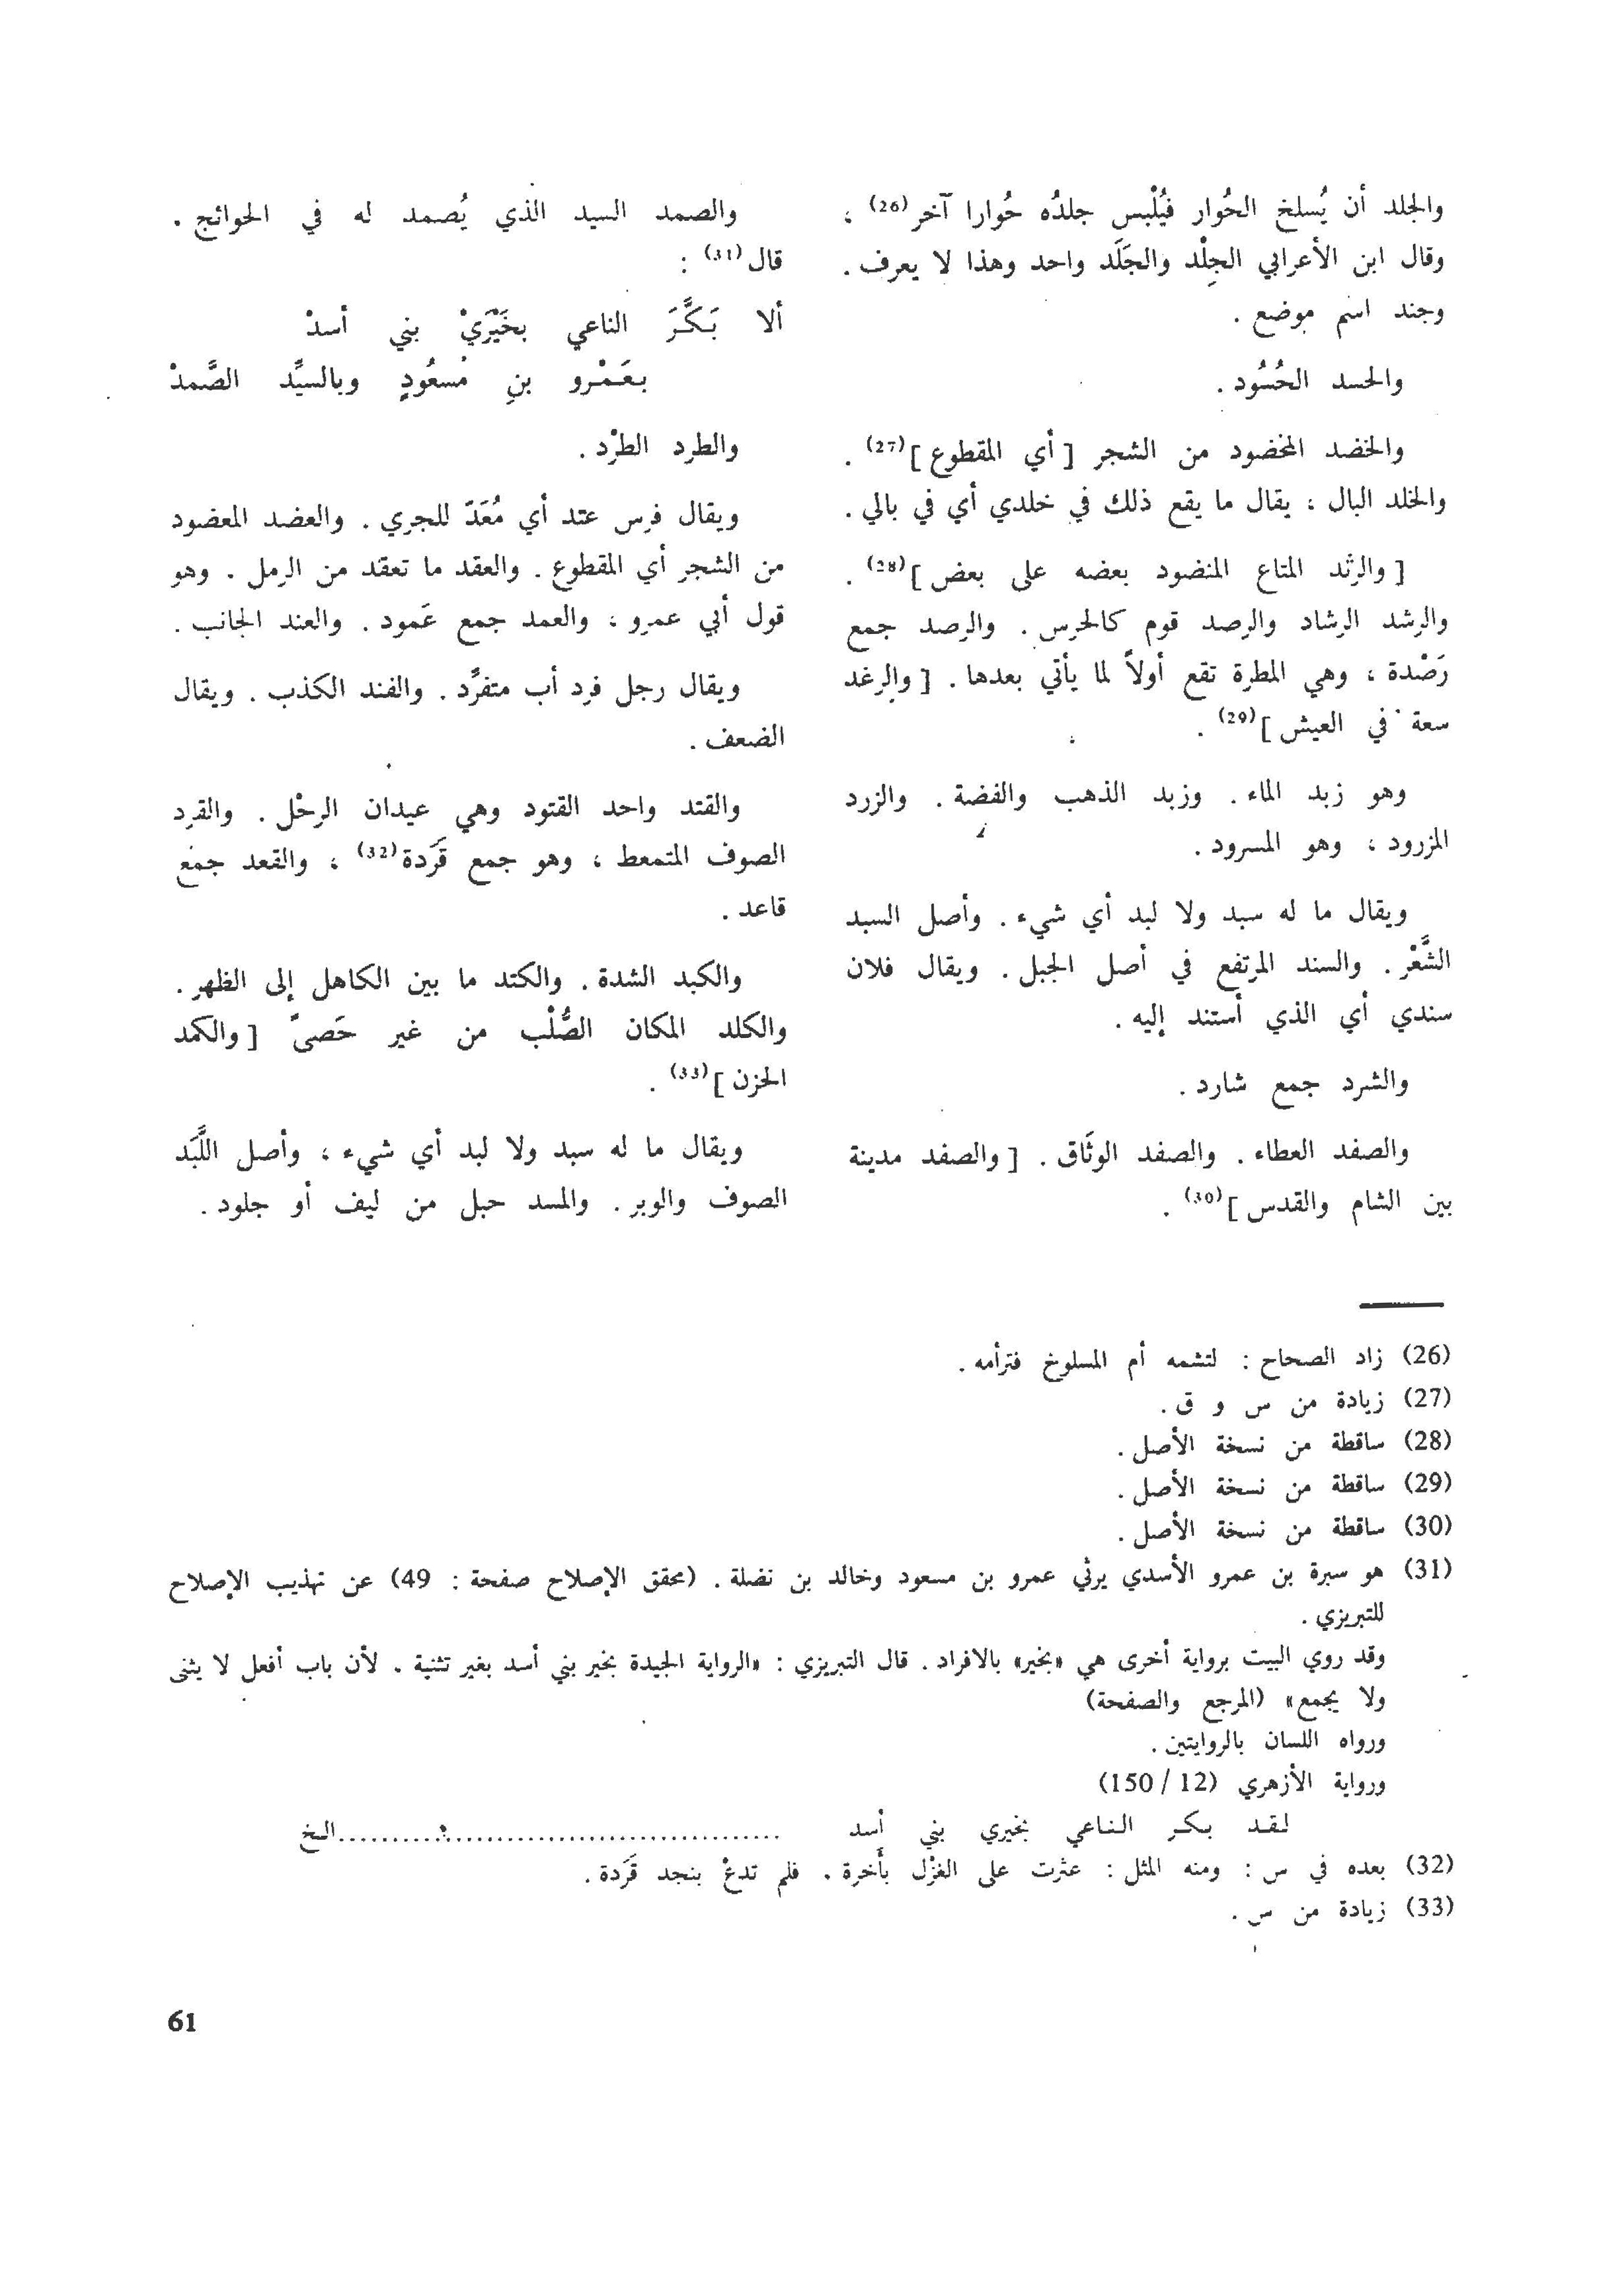 والجلد أن يُسلخ الحُوار فيُلْبس جلدُه حُوارا آخر(26) ،
وقال ابن الأعرابي الجِلْد والجَلَد واحد وهذا لا يعرف .
وجند اسم موضع .
والحسد الحُسُود .
والخضد المخضود من الشجر [ أي المقطوع ](27) .
والخلد البال ، يقال ما يقع ذلك في خلدي أي في بالي .
[ والرثد المتاع المنضود بعضه على بعض ](28) .
والرشد الرشاد والرصد قوم كالحرس . والرصد جمع
رَصْدة ، وهي المطرة تقع أولاً لما يأتي بعدها . [ والرغد
سعة في العيش ](29) .
وهو زبد الماء . وزبد الذهب والفضة . والزرد
المزرود ، وهو المسرود .
ويقال ما له سبد ولا لبد أي شيء . وأصل السبد
الشَّعْر . والسند المرتفع في أصل الجبل . ويقال فلان
سندي أي الذي أستند إليه .
والشرد جمع شارد .
والصفد العطاء . والصفد الوثَاق . [ والصفد مدينة
بين الشام والقدس ](30) .
والصمد السيد الذي يُصمد له في الحوائج .
قال(31) :
ألا بَكَّرَ الناعي بخَيْرَيْ بني أسدْ
بعَمْرو بنِ مسعُودٍ وبالسيِّد الصَّمدْ
والطرد الطرْد .
ويقال فرس عتد أي مُعَدّ للجري . والعضد المعضود
من الشجر أي المقطوع . والعقد ما تعقد من الرمل . وهو
قول أبي عمرو ، والعمد جمع عَمود . والعند الجانب .
ويقال رجل فرد أب متفرِّد . والفند الكذب . ويقال
الضعف .
والقتد واحد القتود وهي عيدان الرحْل . والقرد
الصوف المتمعط ، وهو جمع قَرَدة(32) ، والقعد جمع
قاعد .
والكبد الشدة . والكتد ما بين الكاهل إلى الظهر .
والكلد المكان الصُّلْب من غير حَصىً [ والكمد
الحزن ](33) .
ويقال ما له سبد ولا لبد أي شيء ، وأصل اللَّبَد
الصوف والوبر . والمسد حبل من ليف أو جلود .
(26) زاد الصحاح : لتشمه أم المسلوخ فترأمه .
(27) زيادة من س و ق .
(28) ساقطة من نسخة الأصل .
(29) ساقطة من نسخة الأصل .
(30) ساقطة من نسخة الأصل .
(31) هو سبرة بن عمرو الأسدي يرثي عمرو بن مسعود وخالد بن نضلة . (محقق الإصلاح صفحة : 49) عن تهذيب الإصلاح
للتبريزي .
وقد روي البيت برواية أخرى هي «بخير» بالافراد . قال التبريزي : «الرواية الجيدة بخير بني أسد بغير تثنية . لأن باب أفعل لا يثنى
ولا يجمع» (المرجع والصفحة)
ورواه اللسان بالروايتين .
ورواية الأزهري (12 / 150)
لقد بكر الناعي بخيري بني أسد ............................................الخ
(32) بعده في س : ومنه المثل : عثرت على الغزْل بأَخرة . فلم تدعْ بنجد قَرَدة .
(33) زيادة من س .
61